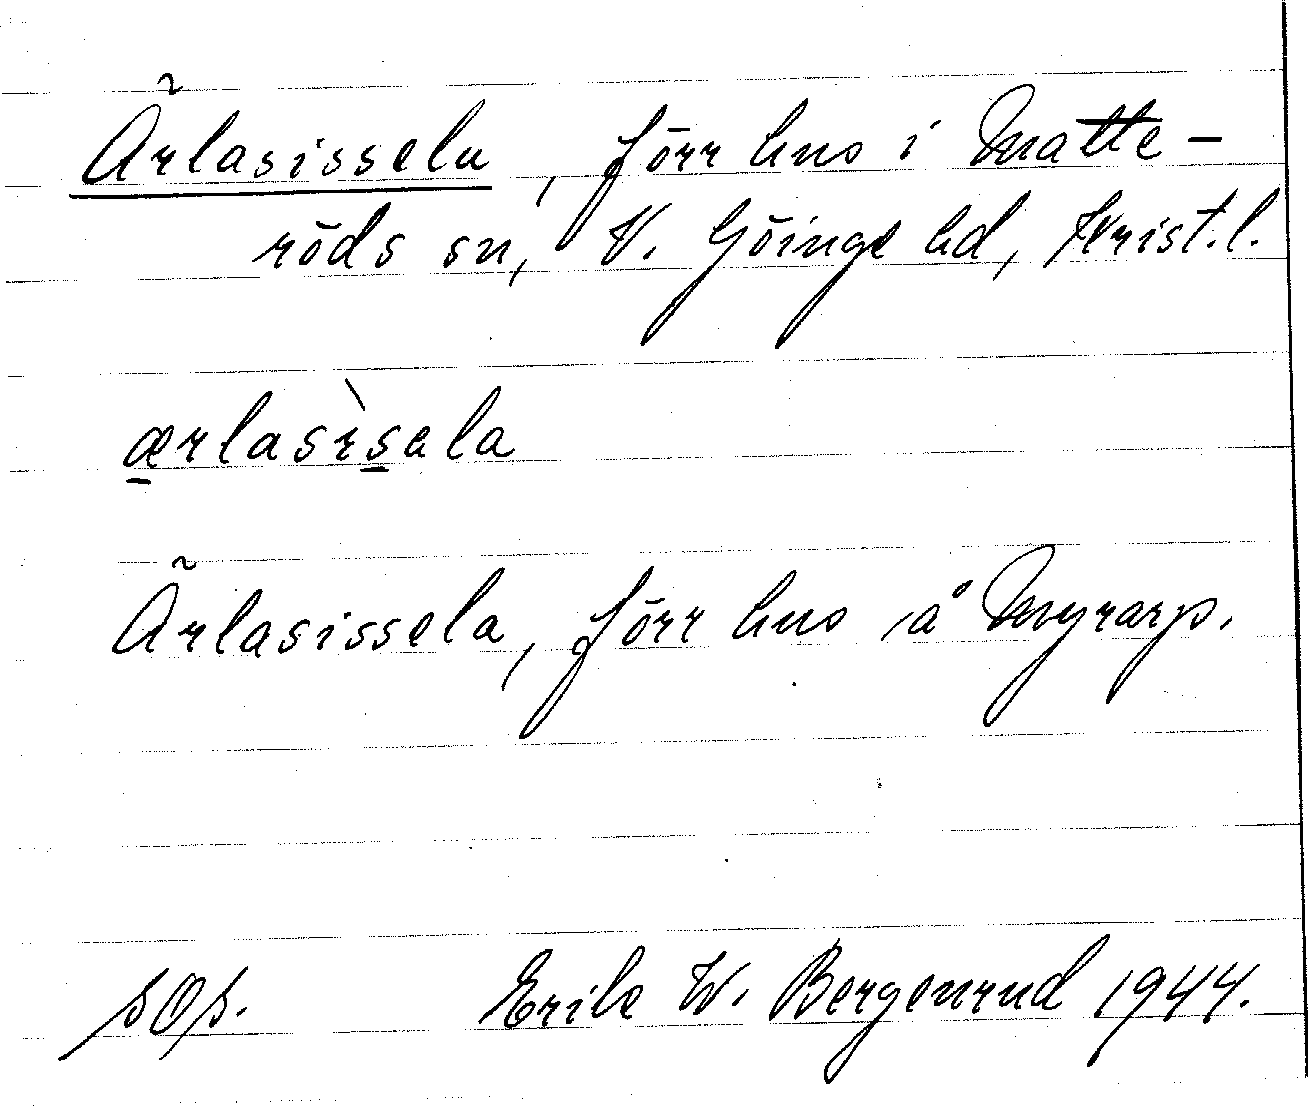 Ärlasisseln, förr hus i Matte-
röds sn, V. Göinge hd, Krist.l.
ærlasìsala
Ärlasissela, förr hus å Myrarp.
Erik W. Bergenrud 1944.